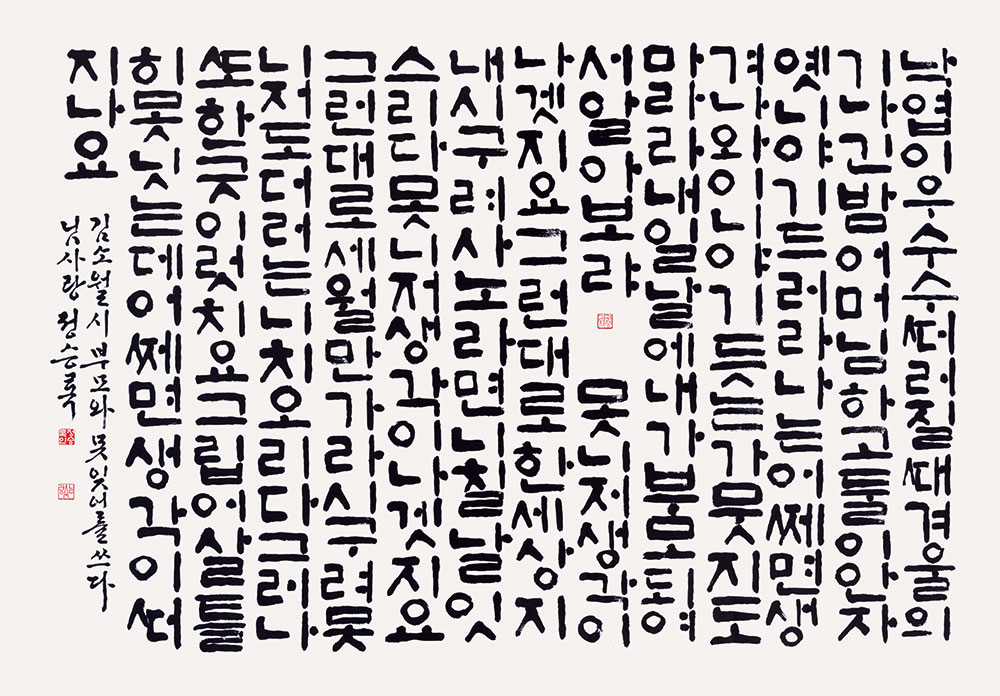 낙엽이우수수ᄯᅥ러질ᄯᅢ겨울의
기나긴밤어머님하고둘이안자
옛니야기드러라나는어ᄶᅦ면생
겨나와이니야기듣는가뭇지도
마라라내일날에내가부모되여
서알아보랴 못니저생각이
나겟지요그런대로한세상지
내시구려사노라면니칠날잇
스리다못니저생각이나겟지요
그런대로세월만가라시구려못
니저도더러는니치오리다그러나
ᄯᅩ한긋이럿치요그립어살틀
히못닛는데어ᄶᅦ면생각이ᄯᅥ
지나요
김소월시 부모와 못잊어를 쓰다
님사랑